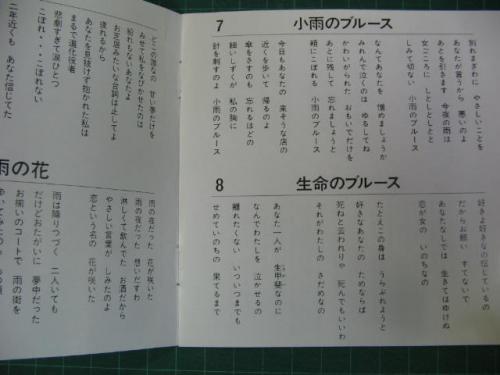 7
小雨のブルース
別れまぎわに やさしいことを
あなたが言うから 悪いのよ
あとを引きます 今夜の雨は
女ごころに しとしとしとと
切ない 小雨のブルース
なんであなたを 憎めましょうか
みれんで泣くのは ゆるしてね
かわいがられた おもいでだけを
あとに残して 忘れましょうと
頬にこぼれる 小雨のブルース
今日もあなたの 来そうな店の
近くを歩いて 帰るのよ
傘をさすのも 忘れるほどの
細いしずくが 私の胸に
針を刺すのよ 小雨のブルース
8
生命のブルース
好きよ好きなの信じているの
だからお願い すてないで
あなたなしでは 生きてはゆけぬ
恋が女の いのちなの
たとえこの身は うらぶれようと
好きなあなたの ためならば
死ねと云われりゃ 死んでもいいわ
それがわたしの さだめなの
あなた一人が 生甲斐なのに
なんでわたしを 泣かせるの
離れたくない いついつまでも
せめていのちの 果てるまで
どこの誰なの 甘い夢だけを
みせて私をなびかせたのは
紛れもないあなたよ
揺れるから
お芝居みたいな台詞は止してよ
あなたを見抜けず抱かれた私は
まるで道化役者
こぼれ・・・こぼれない
悲劇すぎて涙ひとつ
二年近くも あなた信じてた
雨の花
雨の夜だった 花が咲いた
雨の夜だった 想いだすわ
淋しくて飲んでた お酒だから
やさしい言葉が しみたのよ
恋という名の 花が咲いた
雨は降りつづく 二人いても
だけどおたがいに 夢中だった
お揃いのコートで 雨の街を